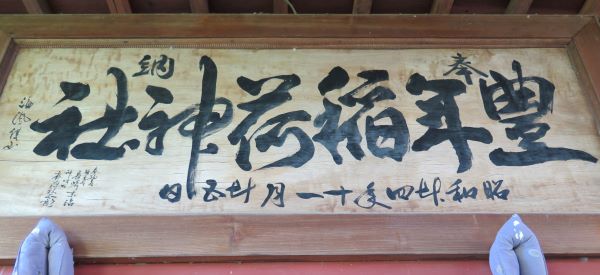 奉納
豊年稲荷神社
昭和廿四年十一月廿五日